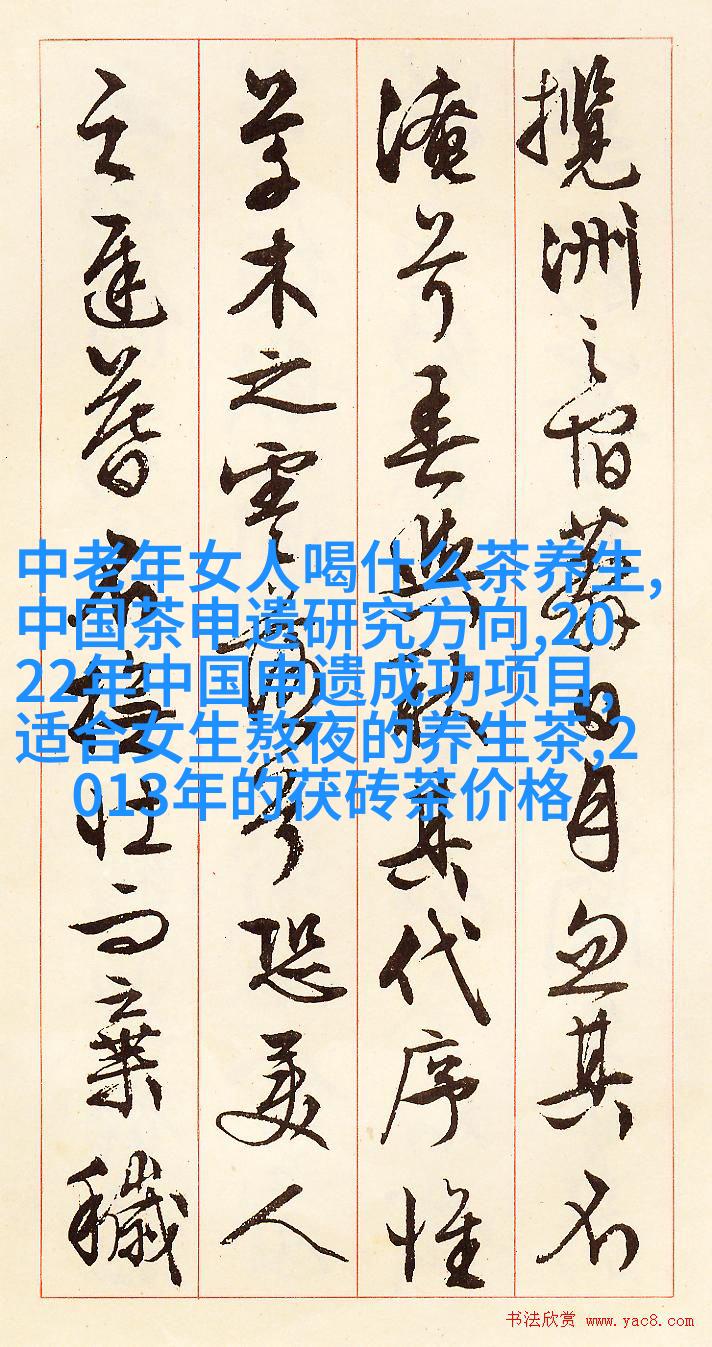 攬洲之宿莽日月忽其不
淹兮春與秋其代序惟
草木之零落兮恐美人
之遲暮不撫壯而棄穢
中老年女人喝什么茶养生,
中国茶申遗研究方向,20
22年中国申遗成功项目,
适合女生熬夜的养生茶,2
013年的茯砖茶价格
书法欣赏 www.yac8.com